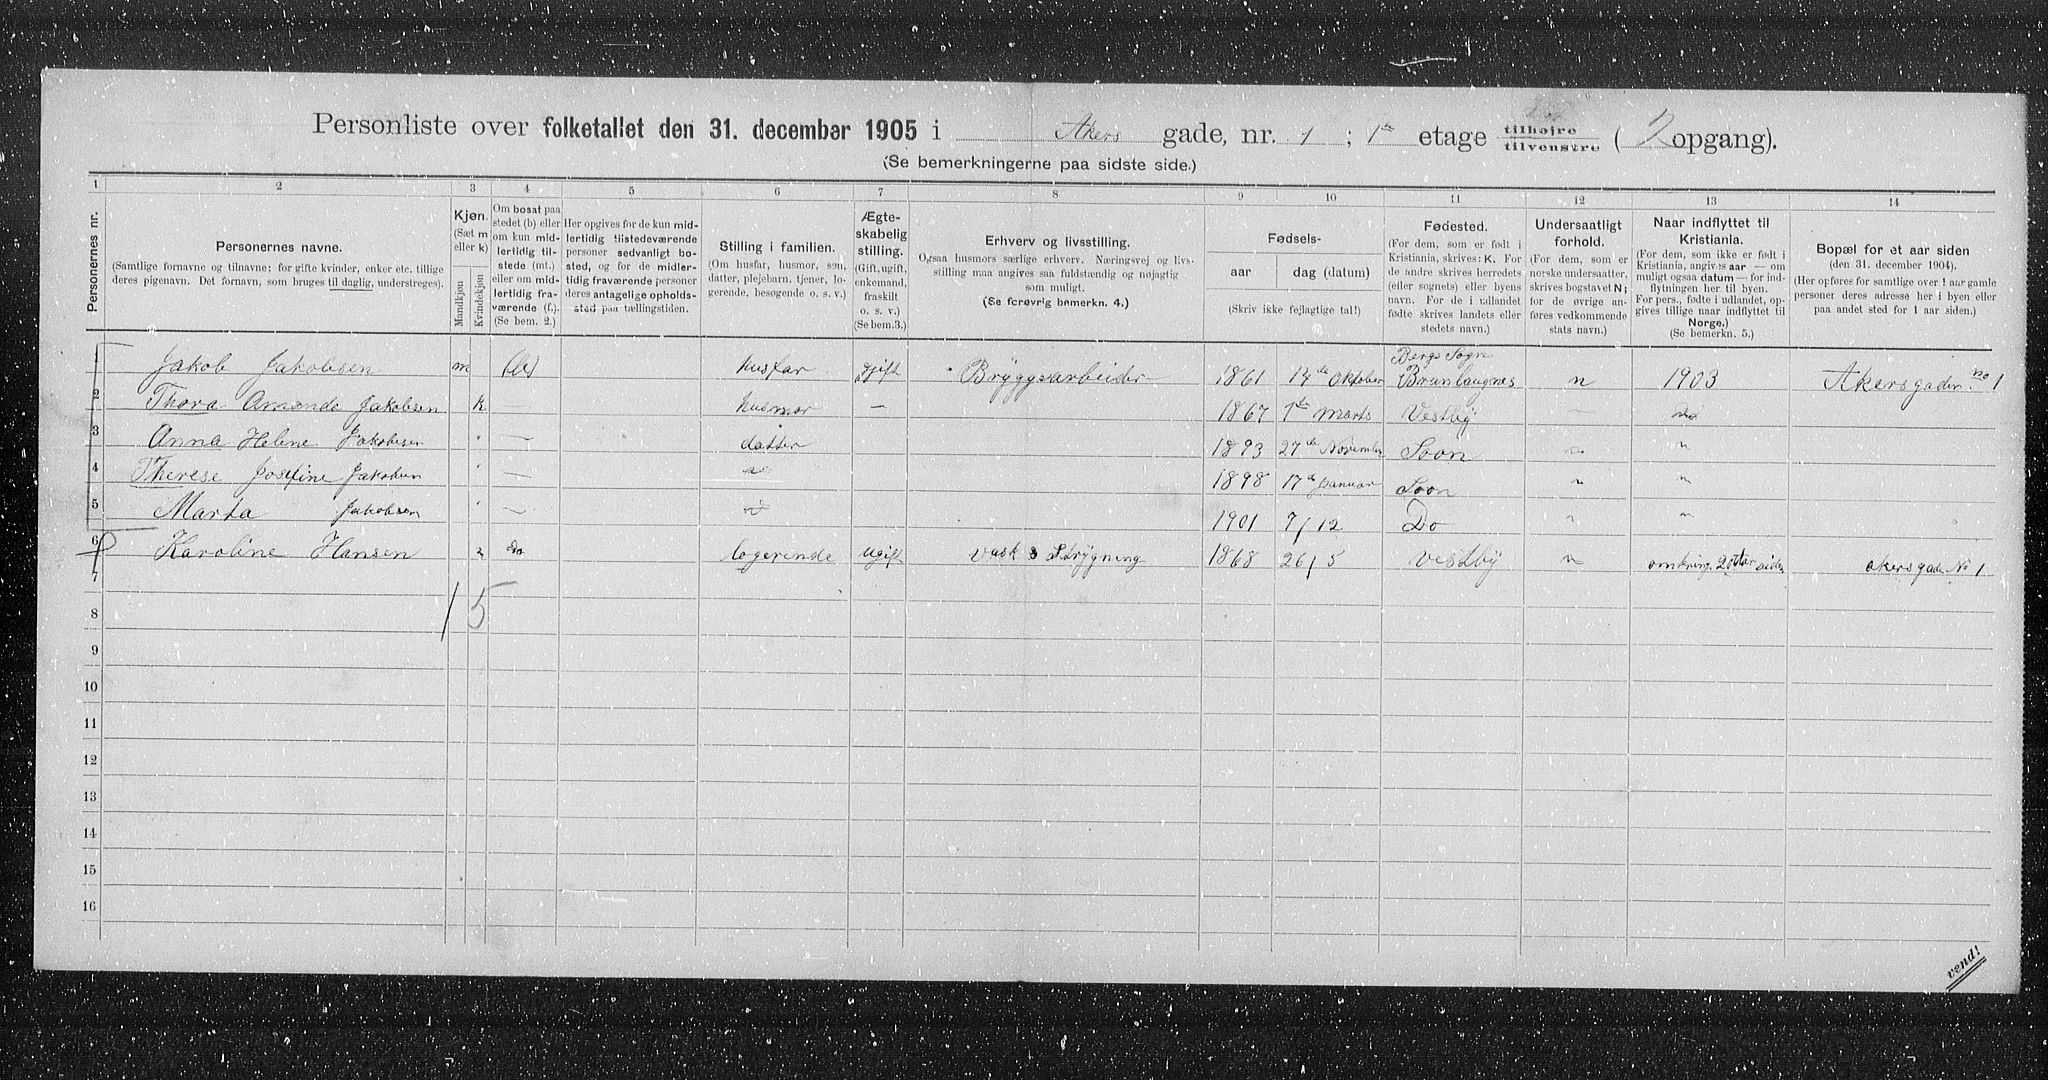 Personliste over folketallet den 31. december 1905 i Akers gade, nr. 1 ; 1ste etage tilhøjre tilvenstre ( 2 opgang).
(Se bemerkningerne paa sidste side.)
1 2 3 4 5 6 7 8 9 10 11 12 13 14
Personernes nr.
Personernes navne.
(Samtlige fornavne og tilnavne; for gifte kvinder, enker etc. tillige
deres pigenavn. Det fornavn, som bruges til daglig, understreges).
Kjøn.
(Sæt m
eller k)
Mandkjøn
Kvindekjøn
Om bosat paa
stedet (b) eller
om kun mid-
lertidig til-
stede (mt.)
eller om mid-
lertidig fra-
værende (f.).
(Se bem. 2.)
Her opgives for de kun mid-
lertidig tilstedeværende
personer sedvanligt bo-
sted, og for de midler-
tidig fraværende personer
deres antagelige opholds-
sted paa tællingstiden.
Stilling i familien.
(Om husfar, husmor, søn,
datter, plejebarn, tjener, lo-
gerende, besøgende o. s. v.)
Ægte-
skabelig
stilling.
(Gift, ugift,
enkemand,
fraskilt
o. s. v.)
(Se bem.3.)
Erhverv og livsstilling.
Ogsaa husmors særlige erhverv. Næringsvej og livs-
stilling maa angives saa fuldstændig og nøjagtig
som muligt.
(Se forøvrig bemerkn. 4.)
Fødsels-
aar
dag (datum)
(Skriv ikke fejlagtige tal!)
Fødested.
(For dem, som er født i
Kristiania, skrives: K. For
de andre skrives herredets
(eller sognets) eller byens
navn. For de i udlandet
fødte skrives landets eller
stedets navn.)
Undersaatligt
forhold.
(For dem, som er
norske undersaatter,
skrives bogstavet N;
for de øvrige an-
føres vedkommende
stats navn.)
Naar indflyttet til
Kristiania.
(For dem, som ikke er født i
Kristiania, angives aar — om
muligt ogsaa datum — for ind-
flytningen her til byen.
For pers., fødte i udlandet, op-
gives tillige naar indflyttet til
Norge.)
(Se bemerkn. 5.)
Bopæl for et aar siden
(den 31. december 1904).
(Her opføres for samtlige over 1 aar gamle
personer deres adresse her i byen eller
paa andet sted for 1 aar siden.)
1 Jakob Jakobsen m (b) husfar gift Bryggearbeider 1861 14de Oktober Bergs Sogn Brunlaugnes n 1903 Akersgaden No 1
2 Thora Amande Jakobsen k husmor — 1867 1ste Marts Vestby — do
3 Anna Helene Jakobsen " — datter 1893 27de November Soon " "
4 Therese Josefine Jakobsen " — do 1898 17de Januar Soon " "
5 Marta Jakobsen " — " 1901 7/12 Do " "
6 Karoline Hansen do logerende ugift Vask & Strygning 1868 26/5 Vestby n omkring 20 aar siden akersgade No 1
7
1 5
8
9
10
11
12
13
14
15
16
vend!